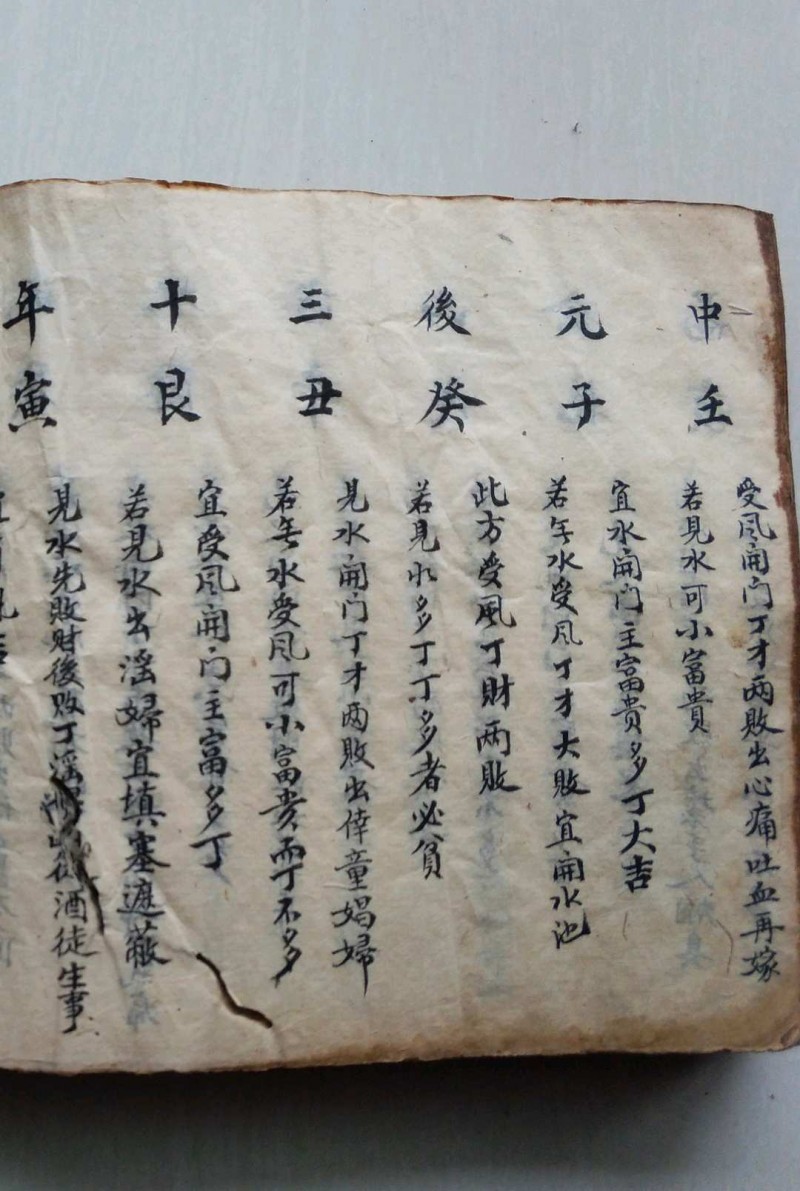 中元後三十年
壬子癸丑艮寅
受风闹门丁才两败出心痛吐血再嫁
若見水可小富貴
宜水闹门主富貴多丁大吉
若無水受风丁才大败宜闹水池
此方受風丁財两敗
若見水多丁丁多者必貧
見水闹门丁才两敗出倖童娼婦
若無水受风可小富贵而丁不多
宜受风闹门主富多丁
若見水出滛婦宜填塞遮蔽
見水先敗财後败丁滛 酒徒生事